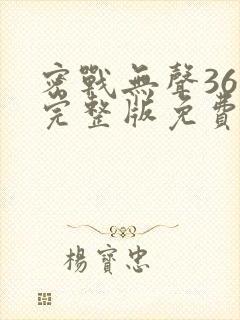 密戰無聲36
完整版免費
楊寶忠